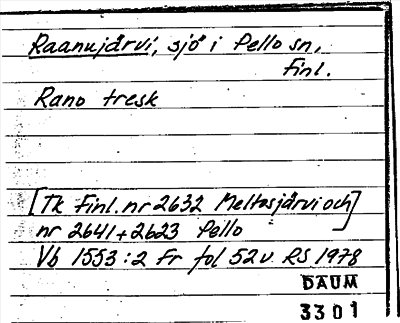 Raanujärvi, sjö i Pello sn,
Finl.
Rano tresk
[Tk Finl. nr 2632 Meltosjärvi och]
nr 2641 + 2623 Pello
Vb 1553:2 Fr fol 52v. RS 1978
DAUM
3301